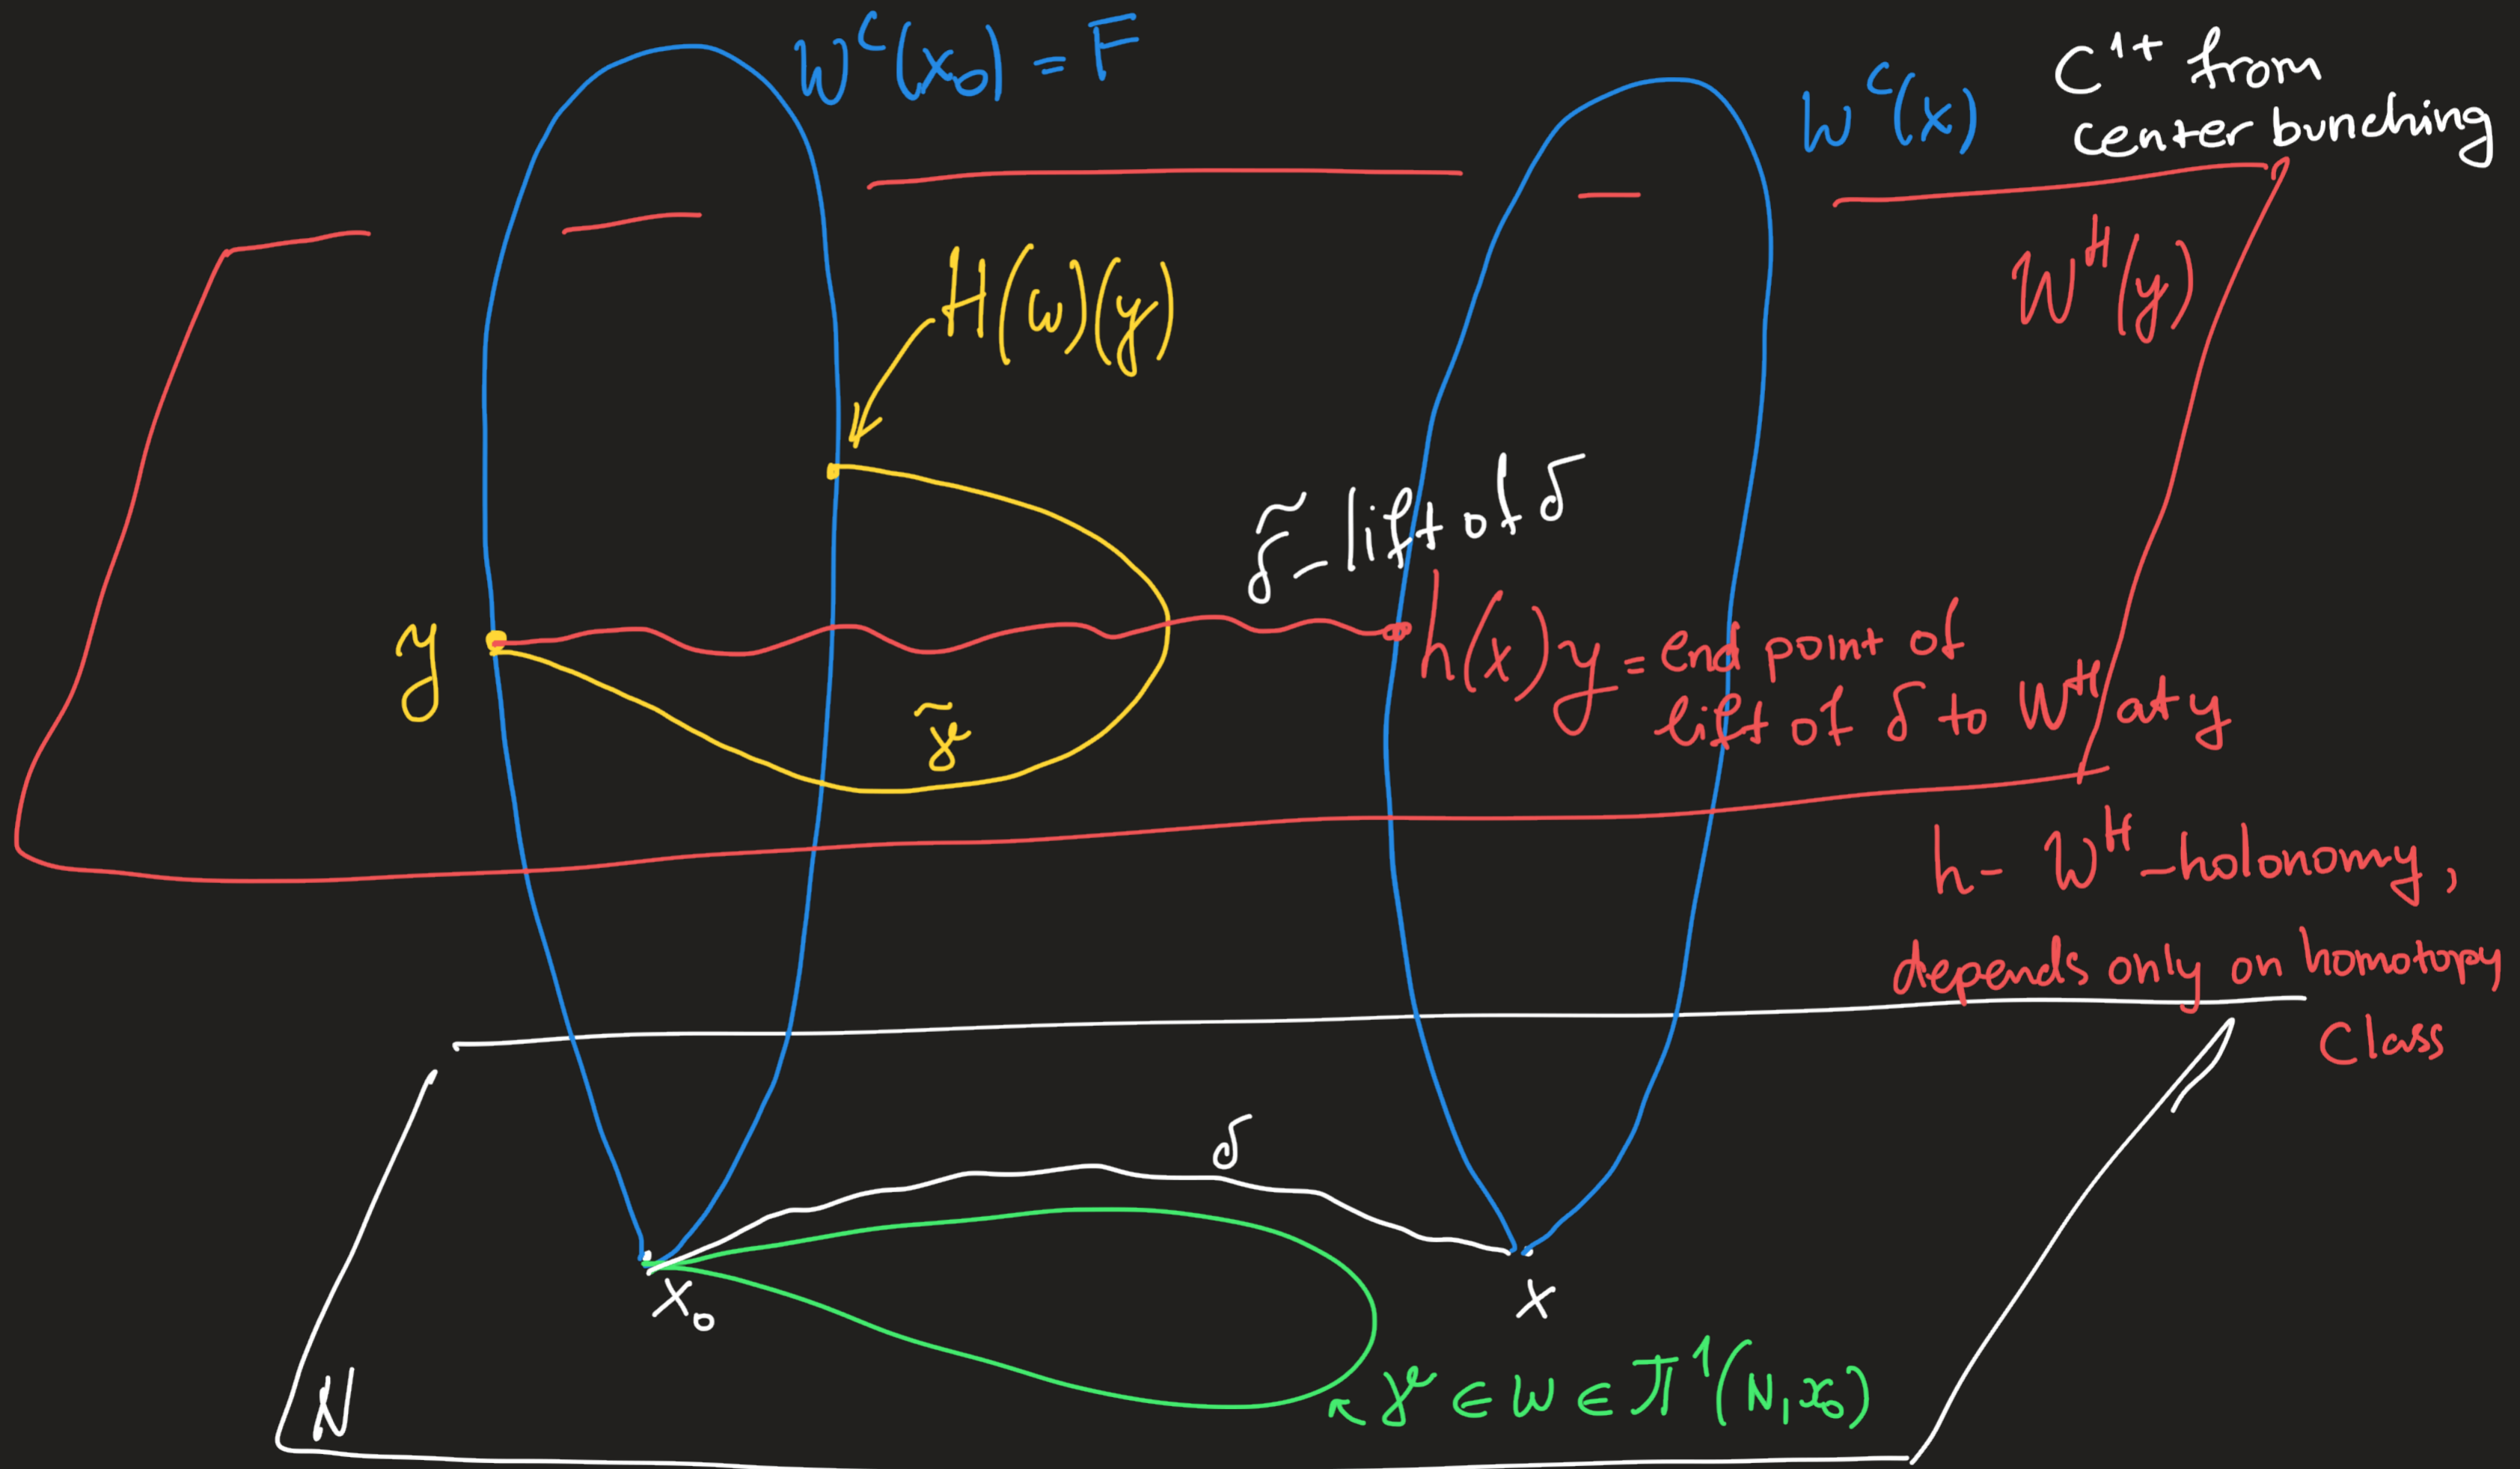 W^c(x₀) = F
W^c(x)
C^{1+} from
center bunching
W^H(y)
H(ω)(y)
δ̃ - lift of δ
y
h(x)y = end point of
lift of δ to W^H at y
γ̃
h - W^H - holonomy,
depends only on homotopy
class
δ
x₀
x
N
γ ∈ ω ∈ π^1(N, x₀)